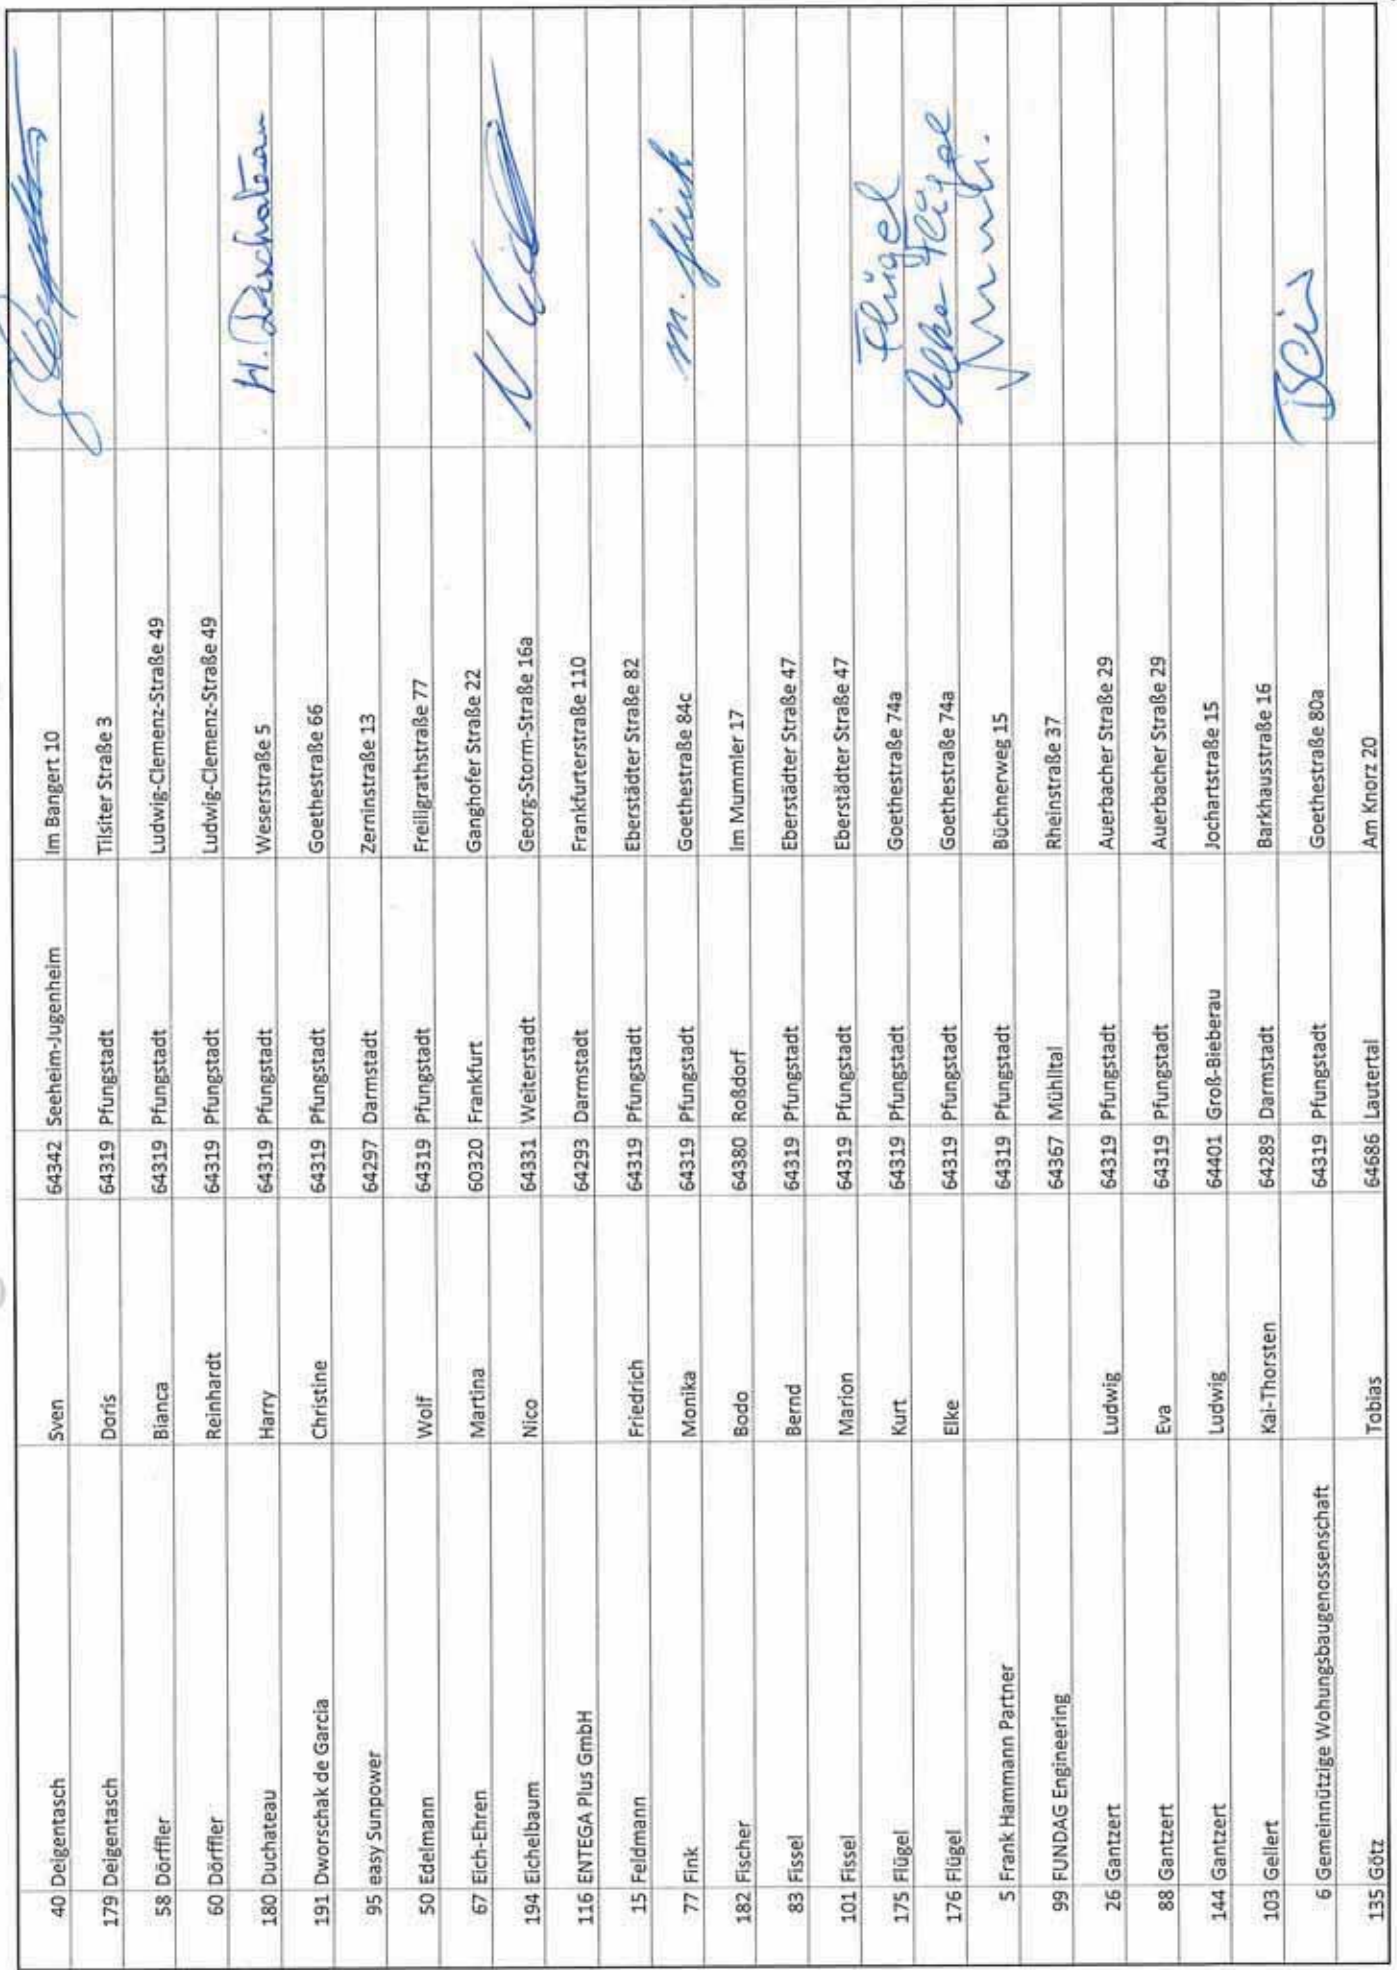 40 Deigentasch Sven 64342 Seeheim-Jugenheim Im Bangert 10
179 Deigentasch Doris 64319 Pfungstadt Tilsiter Straße 3
58 Dörffler Bianca 64319 Pfungstadt Ludwig-Clemenz-Straße 49
60 Dörffler Reinhardt 64319 Pfungstadt Ludwig-Clemenz-Straße 49
180 Duchateau Harry 64319 Pfungstadt Weserstraße 5 H. Duchateau
191 Dworschak de Garcia Christine 64319 Pfungstadt Goethestraße 66
95 easy Sunpower 64297 Darmstadt Zerninstraße 13
50 Edelmann Wolf 64319 Pfungstadt Freiligrathstraße 77
67 Eich-Ehren Martina 60320 Frankfurt Ganghofer Straße 22
194 Eichelbaum Nico 64331 Weiterstadt Georg-Storm-Straße 16a
116 ENTEGA Plus GmbH 64293 Darmstadt Frankfurterstraße 110
15 Feldmann Friedrich 64319 Pfungstadt Eberstädter Straße 82
77 Fink Monika 64319 Pfungstadt Goethestraße 84c M. Fink
182 Fischer Bodo 64380 Roßdorf Im Mummler 17
83 Fissel Bernd 64319 Pfungstadt Eberstädter Straße 47
101 Fissel Marion 64319 Pfungstadt Eberstädter Straße 47
175 Flügel Kurt 64319 Pfungstadt Goethestraße 74a Flügel
176 Flügel Elke 64319 Pfungstadt Goethestraße 74a Elke Flügel
5 Frank Hammann Partner 64319 Pfungstadt Büchnerweg 15
99 FUNDAG Engineering 64367 Mühltal Rheinstraße 37
26 Gantzert Ludwig 64319 Pfungstadt Auerbacher Straße 29
88 Gantzert Eva 64319 Pfungstadt Auerbacher Straße 29
144 Gantzert Ludwig 64401 Groß-Bieberau Jochartstraße 15
103 Gellert Kai-Thorsten 64289 Darmstadt Barkhausstraße 16
6 Gemeinnützige Wohungsbaugenossenschaft 64319 Pfungstadt Goethestraße 80a
135 Götz Tobias 64686 Lautertal Am Knorz 20